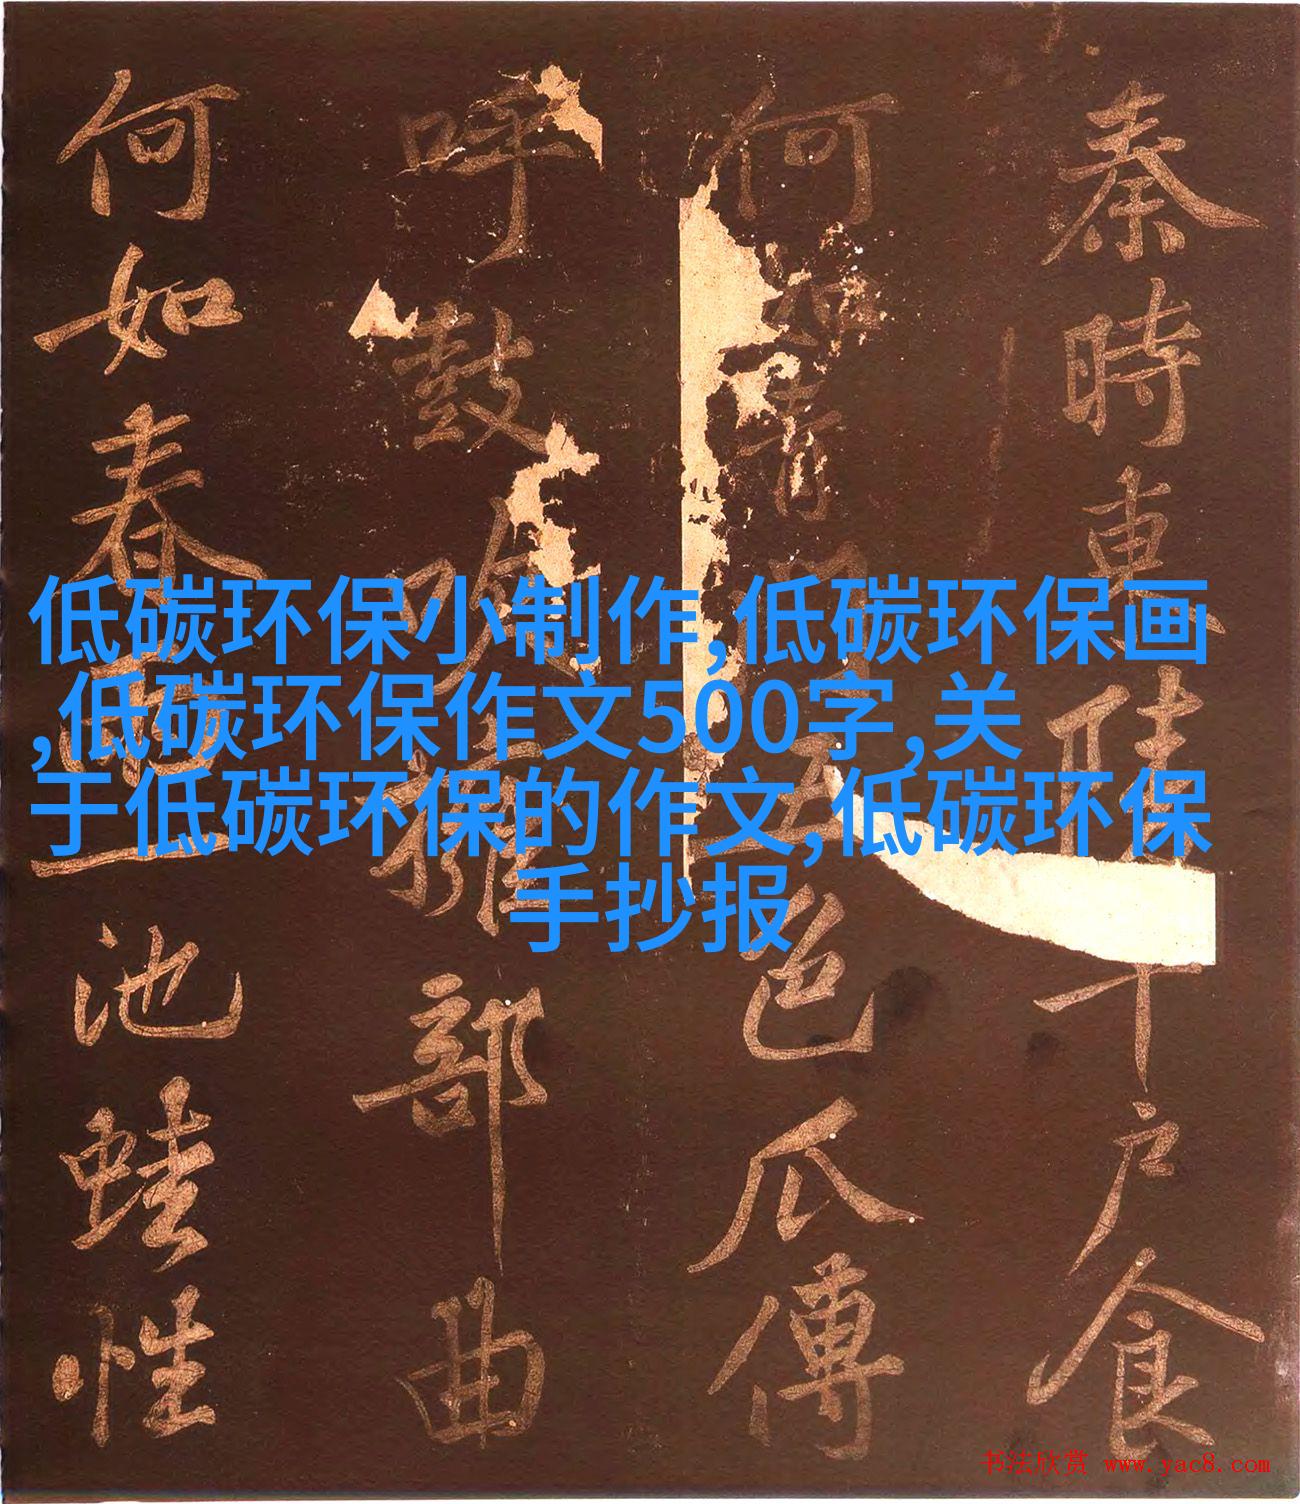 秦時東陵千户食
何如青門五色瓜傳
呼鼓吹擁部曲
何如春塘一池蛙性
低碳环保小制作,低碳环保画
,低碳环保作文500字,关
于低碳环保的作文,低碳环保
手抄报
书法欣赏 www.yac8.com